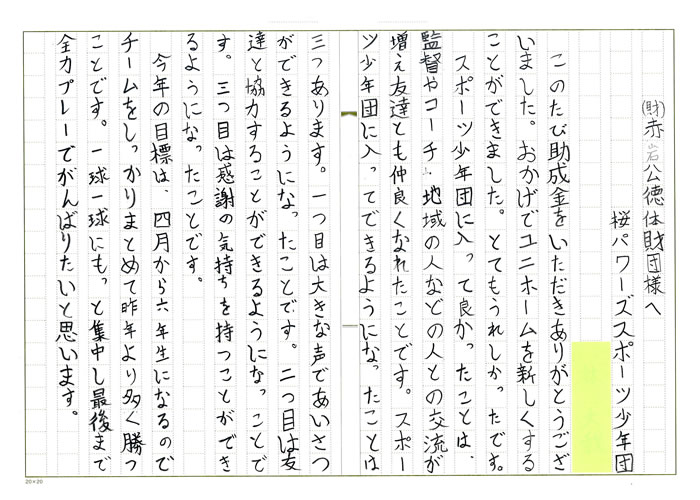 (財)赤岩公徳体財団様へ
桜パワーズスポーツ少年団
このたび助成金をいただきありがとうござ
いました。おかげでユニホームを新しくする
ことができました。とてもうれしかったです。
スポーツ少年団に入って良かったことは、
監督やコーチ、地域の人などの人との交流が
増え友達とも仲良くなれたことです。スポー
ツ少年団に入ってできるようになったことは
三つあります。一つ目は大きな声であいさつ
ができるようになったことです。二つ目は友
達と協力することができるようになったことで
す。三つ目は感謝の気持ちを持つことができ
るようになったことです。
今年の目標は、四月から六年生になるので
チームをしっかりまとめて昨年より多く勝つ
ことです。一球一球にもっと集中し最後まで
全力プレーでがんばりたいと思います。
20×20